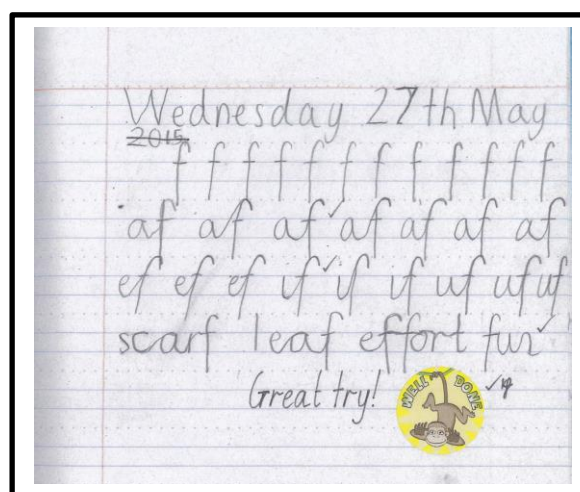 Wednesday 27th May
2015
f f f f f f f f f f f f
af af af af af af af
ef ef ef if if if uf uf uf
scarf leaf effort fur
Great try!
WELL DONE